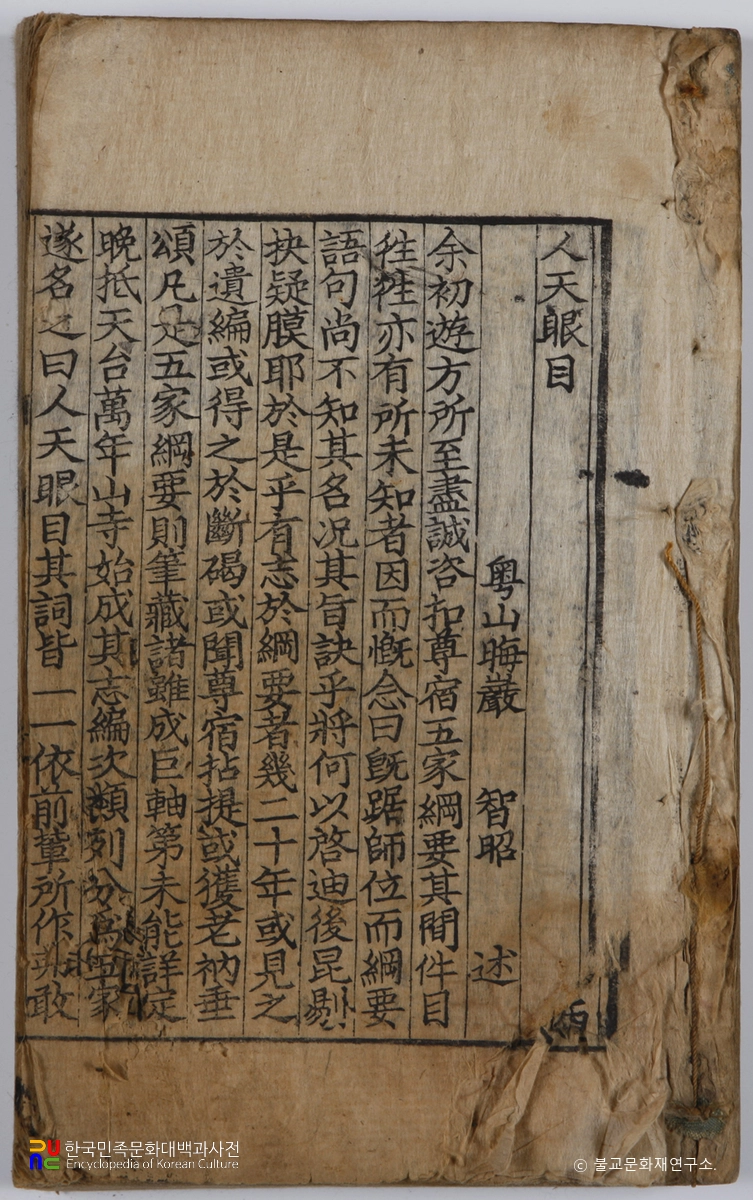 人天眼目
粤山晦巖 智昭 述
余初遊方所至盡誠咨扣尊宿五家綱要其間件目
徃徃亦有所未知者因而慨念曰旣踞師位而綱要
語句尚不知其名况其旨訣乎將何以啓迪後昆剔
抉疑膜耶於是乎有志於綱要者幾二十年或見之
於遺編或得之於斷碣或聞尊宿拈提或獲老衲垂
頌凡是五家綱要則筆藏諸雖成巨軸第未能詳定
晚抵天台萬年山寺始成其志編次類列分爲五家
遂名之曰人天眼目其詞皆一一依前輩所作 敢
한국민족문화대백과사전
Encyclopedia of Korean Culture
© 불교문화재연구소.